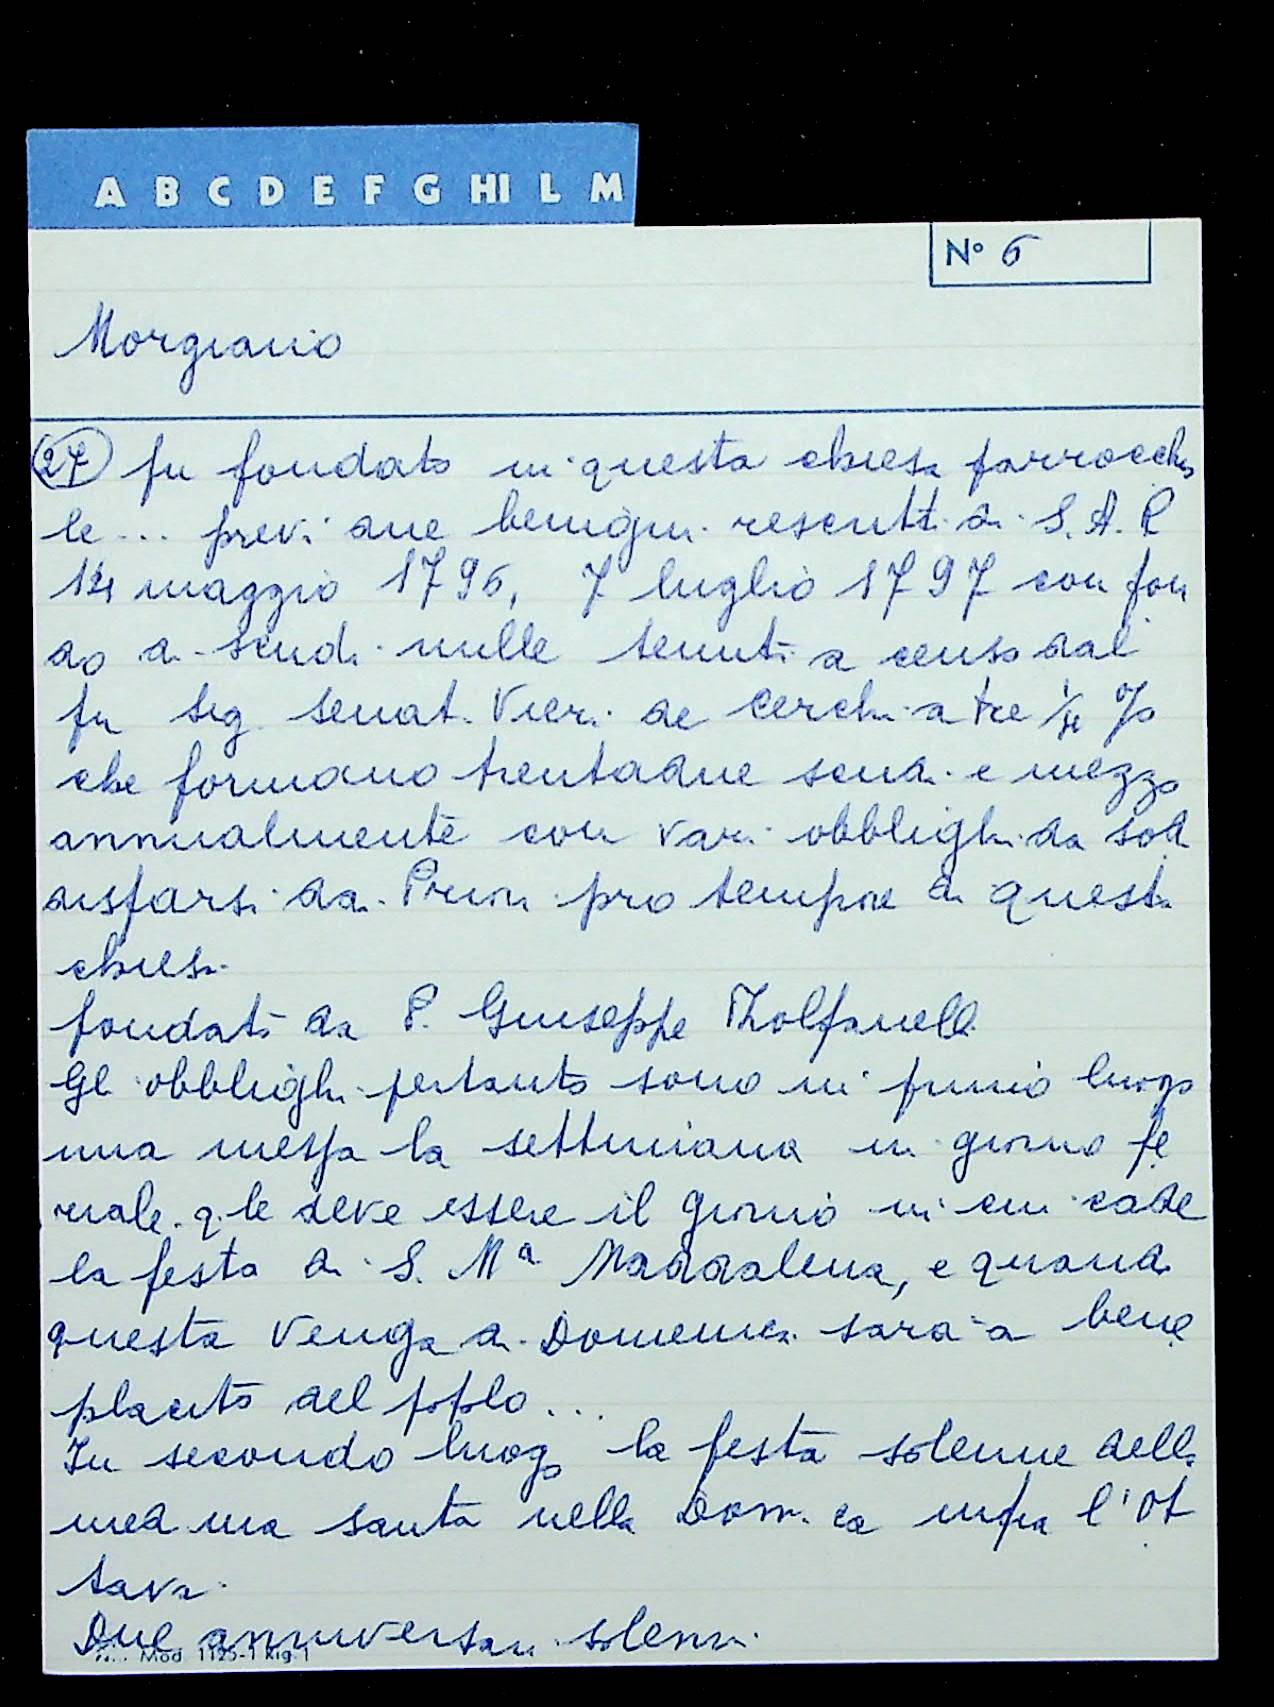 A B C D E F G HI L M
N° 6
Morgiano
27 fu fondato in questa chiesa parrocchia
le ... previ due benigni rescritti di S.A.R
14 maggio 1796, 7 luglio 1797 con fon
do di scudi mille tenuti a censo dal
fu sig. senat. Vieri de Cerchi a tre 1/4 %
che formano trentadue scudi e mezzo
annualmente con vari obblighi da sod
disfarsi dai Priori pro tempore di questa
chiesa.
fondati da P. Giuseppe Zolfanelli
Gl obblighi pertanto sono in primo luogo
una messa la settimana in giorno fe
riale. q.le deve essere il giorno in cui cade
la festa di S. Mª Maddalena, e quando
questa venga di Domenica sarà a bene
placito del pplo ...
In secondo luogo la festa solenne della
med.ma santa nella Dom.ca infra l'Ot
tava.
Due anniversari solenni.
Mod. 1125-1 Rig. 1